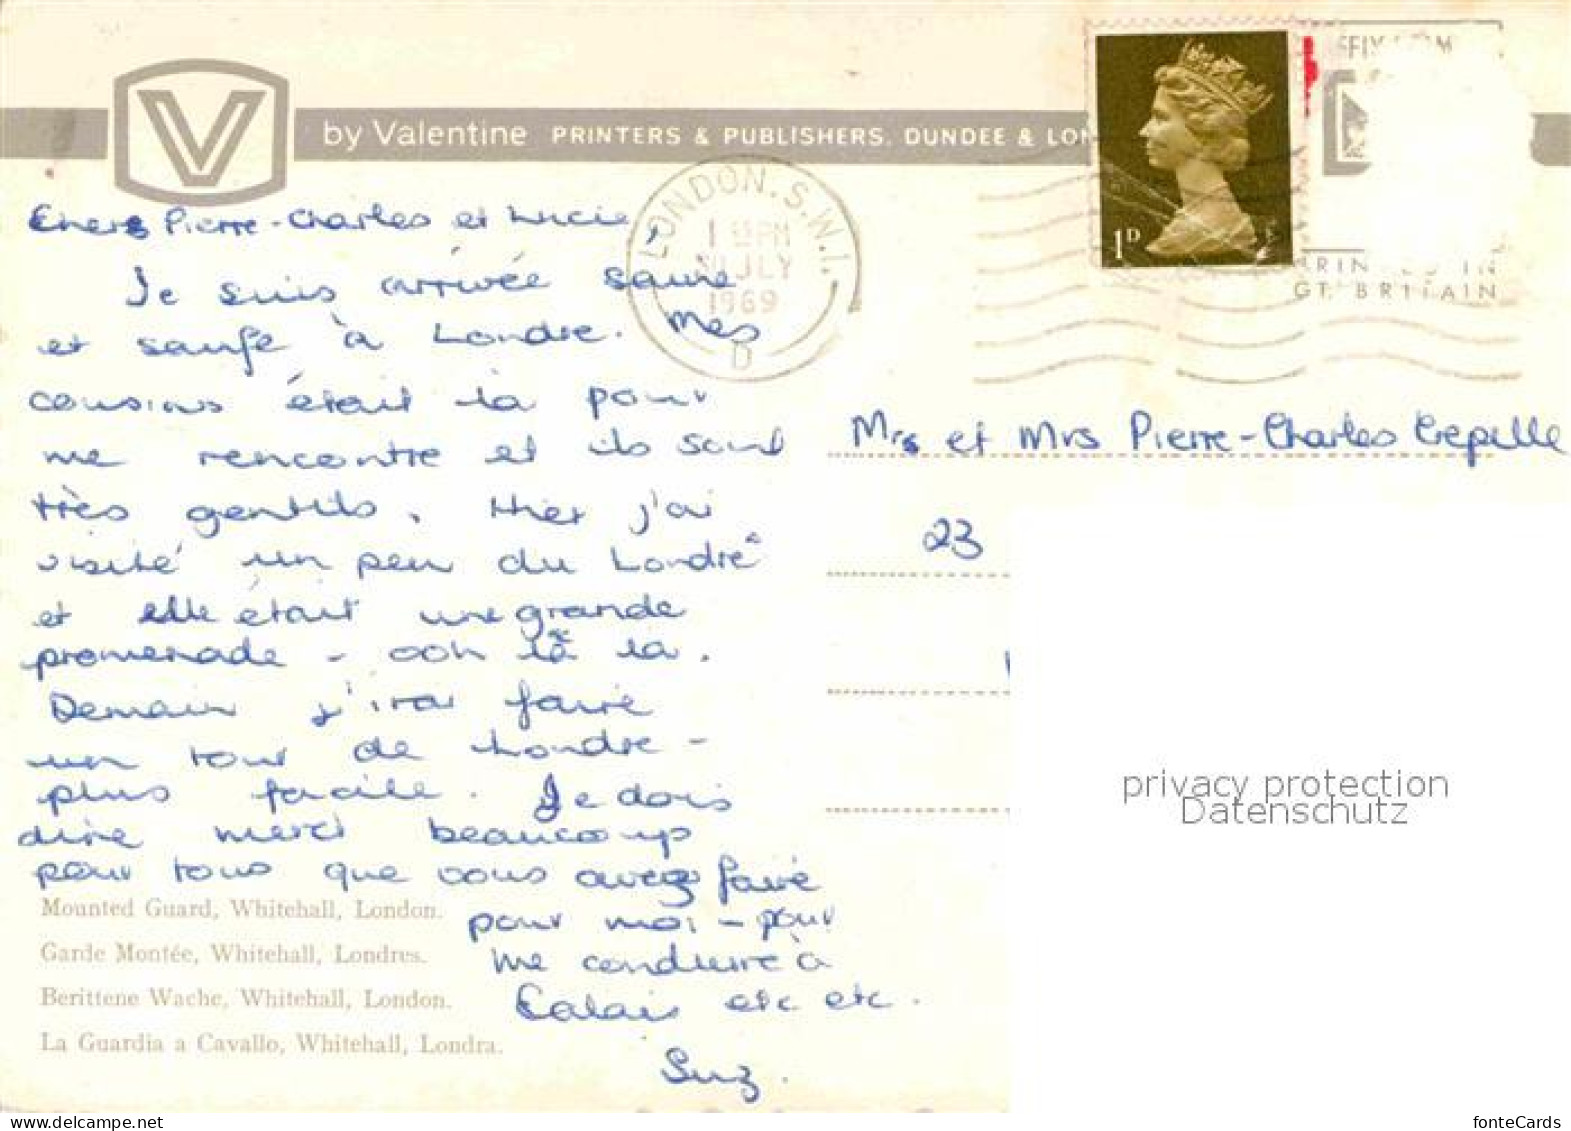 V by Valentine PRINTERS & PUBLISHERS, DUNDEE & LON
LONDON. S.W.1.
1 PM
JLY
1969
D
1D
GT. BRITAIN
Chers Pierre-Charles et Lucie,
Je suis arrivée sauve
et saufe à Londre. Mes
cousins était là pour
me rencontre et ils sont
très gentils. Hier j'ai
visité un peu du Londre
et elle était une grande
promenade - ooh là la.
Demain j'irai faire
un tour de Londre -
plus facile. Je dois
dire merci beaucoup
pour tous que vous avez faire
pour moi - pour
me conduire à
Calais etc etc.
Suz.
Mrs et Mrs Pierre-Charles Crepelle
23
Mounted Guard, Whitehall, London.
Garde Montée, Whitehall, Londres.
Berittene Wache, Whitehall, London.
La Guardia a Cavallo, Whitehall, Londra.
privacy protection
Datenschutz
fonteCards